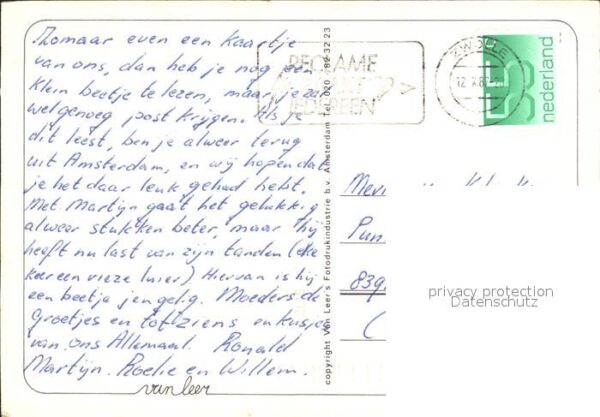 Zomaar even een kaartje
van ons, dan heb je nog een
klein beetje te lezen, maar je zal
wel genoeg post krijgen. Als je
dit leest, ben je alweer terug
uit Amsterdam, en wij hopen dat
je het daar leuk gehad hebt.
Met Martijn gaat het gelukkig
alweer stukken beter, maar hij
heeft nu last van zijn tanden (elke
keer een vieze luier). Hiervan is hij
een beetje jengelig. Moeders de
Groetjes en tot ziens en kusjes
van ons Allemaal. Ronald
Martijn. Roelie en Willem.
van leer
copyright Van Leer's Fotodrukindustrie b.v. Amsterdam Tel. 020 - 82 32 23
RECLAME
IEDEREEN
ZWOLLE
nederland
privacy protection
Datenschutz